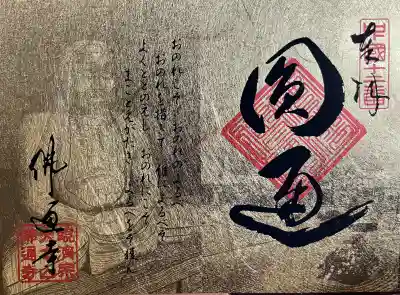 中國十二番
奉拝
圓通
おのれこそ おのれのよるべ
おのれを措きて 誰によるべぞ
よくととのえし おのれにこそ
まことえがたき よるべをぞ獲ん
佛通寺